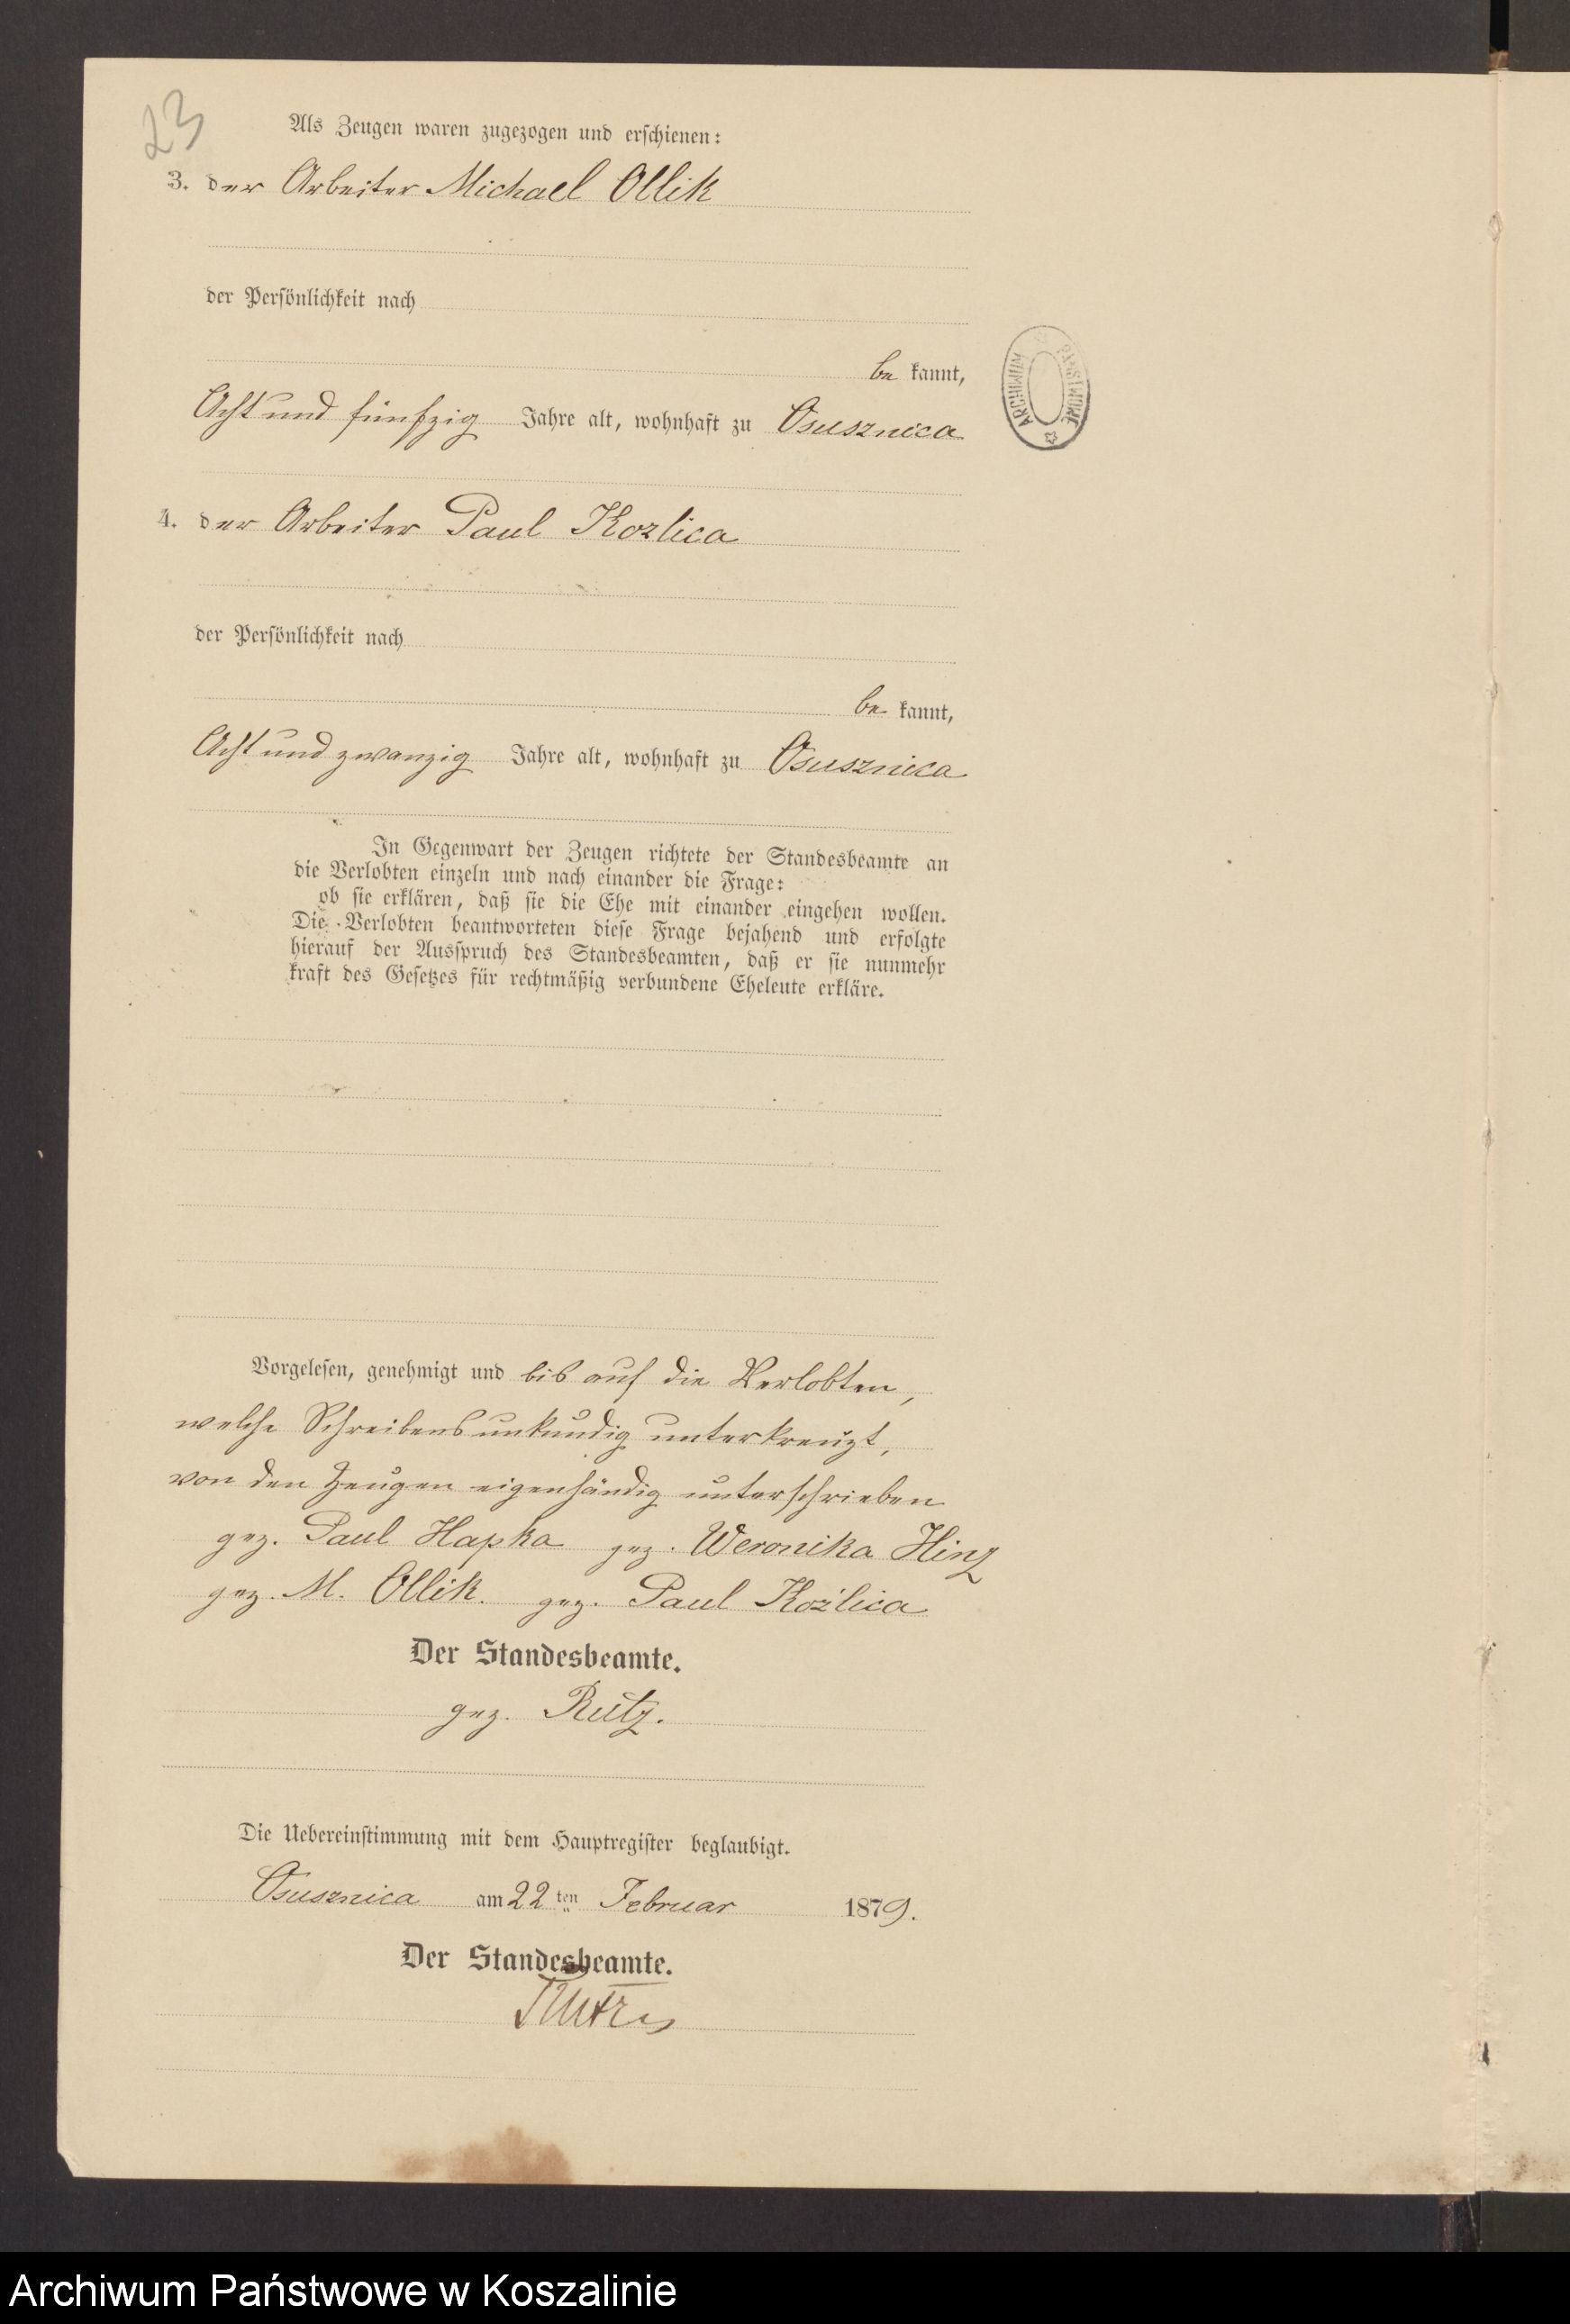 23
Als Zeugen waren zugezogen und erschienen:
3. der Arbeiter Michael Ollik
der Persönlichkeit nach
be kannt,
Acht und fünfzig Jahre alt, wohnhaft zu Osusznica
ARCHIWUM PAŃSTWOWE
4. der Arbeiter Paul Kozlica
der Persönlichkeit nach
be kannt,
Acht und zwanzig Jahre alt, wohnhaft zu Osusznica
In Gegenwart der Zeugen richtete der Standesbeamte an
die Verlobten einzeln und nach einander die Frage:
ob sie erklären, daß sie die Ehe mit einander eingehen wollen.
Die Verlobten beantworteten diese Frage bejahend und erfolgte
hierauf der Ausspruch des Standesbeamten, daß er sie nunmehr
kraft des Gesetzes für rechtmäßig verbundene Eheleute erkläre.
Vorgelesen, genehmigt und bis auf die Verlobten,
welche Schreibens unkundig unterkreuzt,
von den Zeugen eigenhändig unterschrieben
gez. Paul Hapka gez. Weronika Hinz
gez. M. Ollik. gez. Paul Koźlica
Der Standesbeamte.
gez. Rutz.
Die Uebereinstimmung mit dem Hauptregister beglaubigt.
Osusznica am 22ten Februar 1879.
Der Standesbeamte.
Archiwum Państwowe w Koszalinie